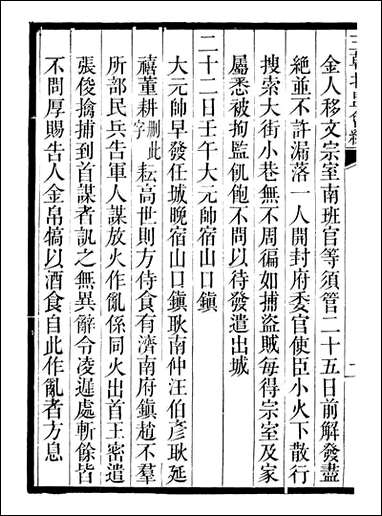 三朝北盟會編
金人移文宗室南班官等須管二十五日前解發盡
絶並不許漏落一人開封府委官使臣小火下散行
搜索大街小巷無不周徧如捕盜賊每得宗室及家
屬悉被拘監飢飽不問以待發遣出城
二十二日壬午大元帥宿山口鎮
大元帥早發任城晚宿山口鎮耿南仲汪伯彥耿延
禧董耕字刪此耘高世則方侍食有濟南府鎮趙不羣
所部民兵告軍人謀放火作亂係同火出首王密遣
張俊擒捕到首謀者訊之無異辭令凌遲處斬餘皆
不問厚賜告人金帛犒以酒食自此作亂者方息